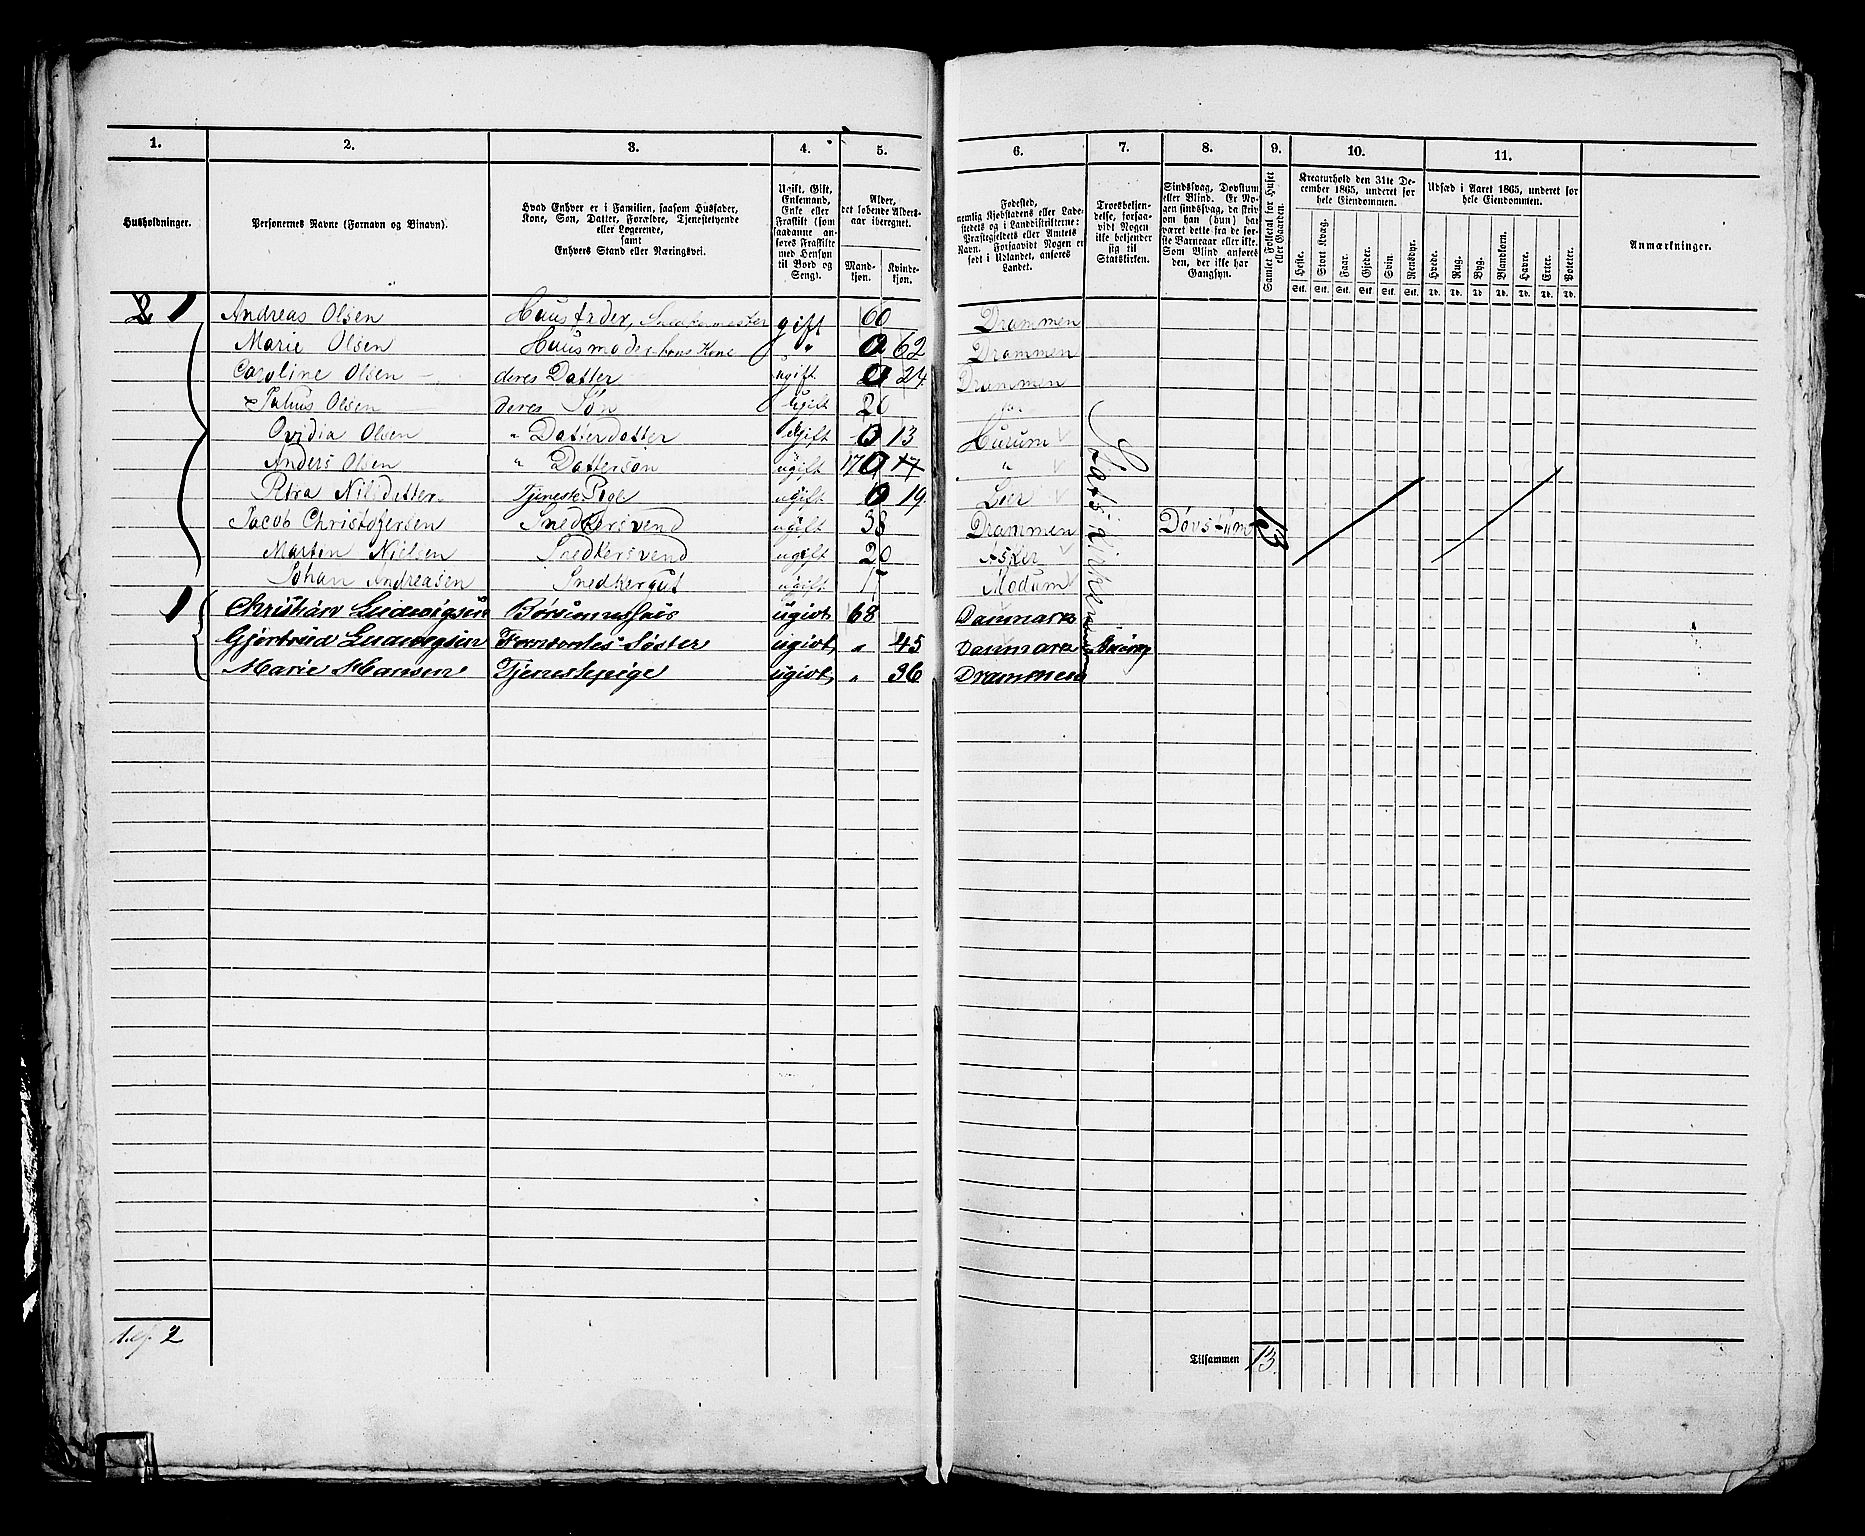 1. 2. 3. 4. 5. 6. 7. 8. 9. 10. 11.
Husholdninger.
Personernes Navne (Fornavn og Binavn).
Hvad Enhver er i Familien, saasom Husfader,
Kone, Søn, Datter, Forældre, Tjenestetyende
eller Logerende,
samt
Enhvers Stand eller Næringsvei.
Ugift, Gift,
Enkemand,
Enke eller
Fraskilt (som
saadanne an-
føres Fraskilte
med Hensyn
til Bord og
Seng).
Alder,
det løbende Alders-
aar iberegnet.
Mand-
kjøn.
Kvinde-
kjøn.
Fødested,
nemlig Kjøbstadens eller Lade-
stedets og i Landdistrikterne:
Præstegjeldets eller Antels
Navn. Forsaavidt Nogen er
født i Udlandet, anføres
Landet.
Troesbekjen-
delse, forsaa-
vidt Nogen
ikke bekjender
sig til
Statskirken.
Sindssvag, Døvstum
eller Blind. Er No-
gen sindssvag, da skriv
om han (hun) har
været dette fra de før-
ste Barneaar eller ikke.
Som Blind anføres
den, der ikke har
Gangsyn.
Samlet Folketal for Huset
eller Gaarden.
Kreaturhold den 31te De-
cember 1865, underet for
hele Eiendommen.
Heste. Stort Kvæg. Faar. Gjeder. Svin. Rensdyr.
Stk. Stk. Stk. Stk. Stk. Stk.
Udsæd i Aaret 1865, underet for
hele Eiendommen.
Hvede. Rug. Byg. Blandkorn. Havre. Erter. Poteter.
Td. Td. Td. Td. Td. Td. Td.
Anmærkninger.
2 1 Andreas Olsen Huusfader, Snedkermester gift 60 Drammen
Marie Olsen Huusmoder hans Kone " 0 62 Drammen
Caroline Olsen deres Datter ugift 0 24 Drammen
Julius Olsen deres Søn Ugift 20
Ovidia Olsen " Datterdatter Ugift 0 13 Hurum
Anders Olsen " Dattersøn ugift 17 0 17 "
Petra Nilsdatter Tjeneste Pige ugift 0 19 Lier
Jacob Christofersen Snedkersvend ugift 38 Drammen Døvstum 13
Martin Nielsen Snedkersvend ugift 20 Asker
Johan Andreasen Snedkergut ugift Modum
Statskirken
1 Christian Ludvigsen ugivt 68 Danmark
Gjørtrud Ludvigsen Søster ugivt " 45 Danmark
Marie Hansen Tjenestepige ugivt " 36 Drammen
2
Tilsammen 13